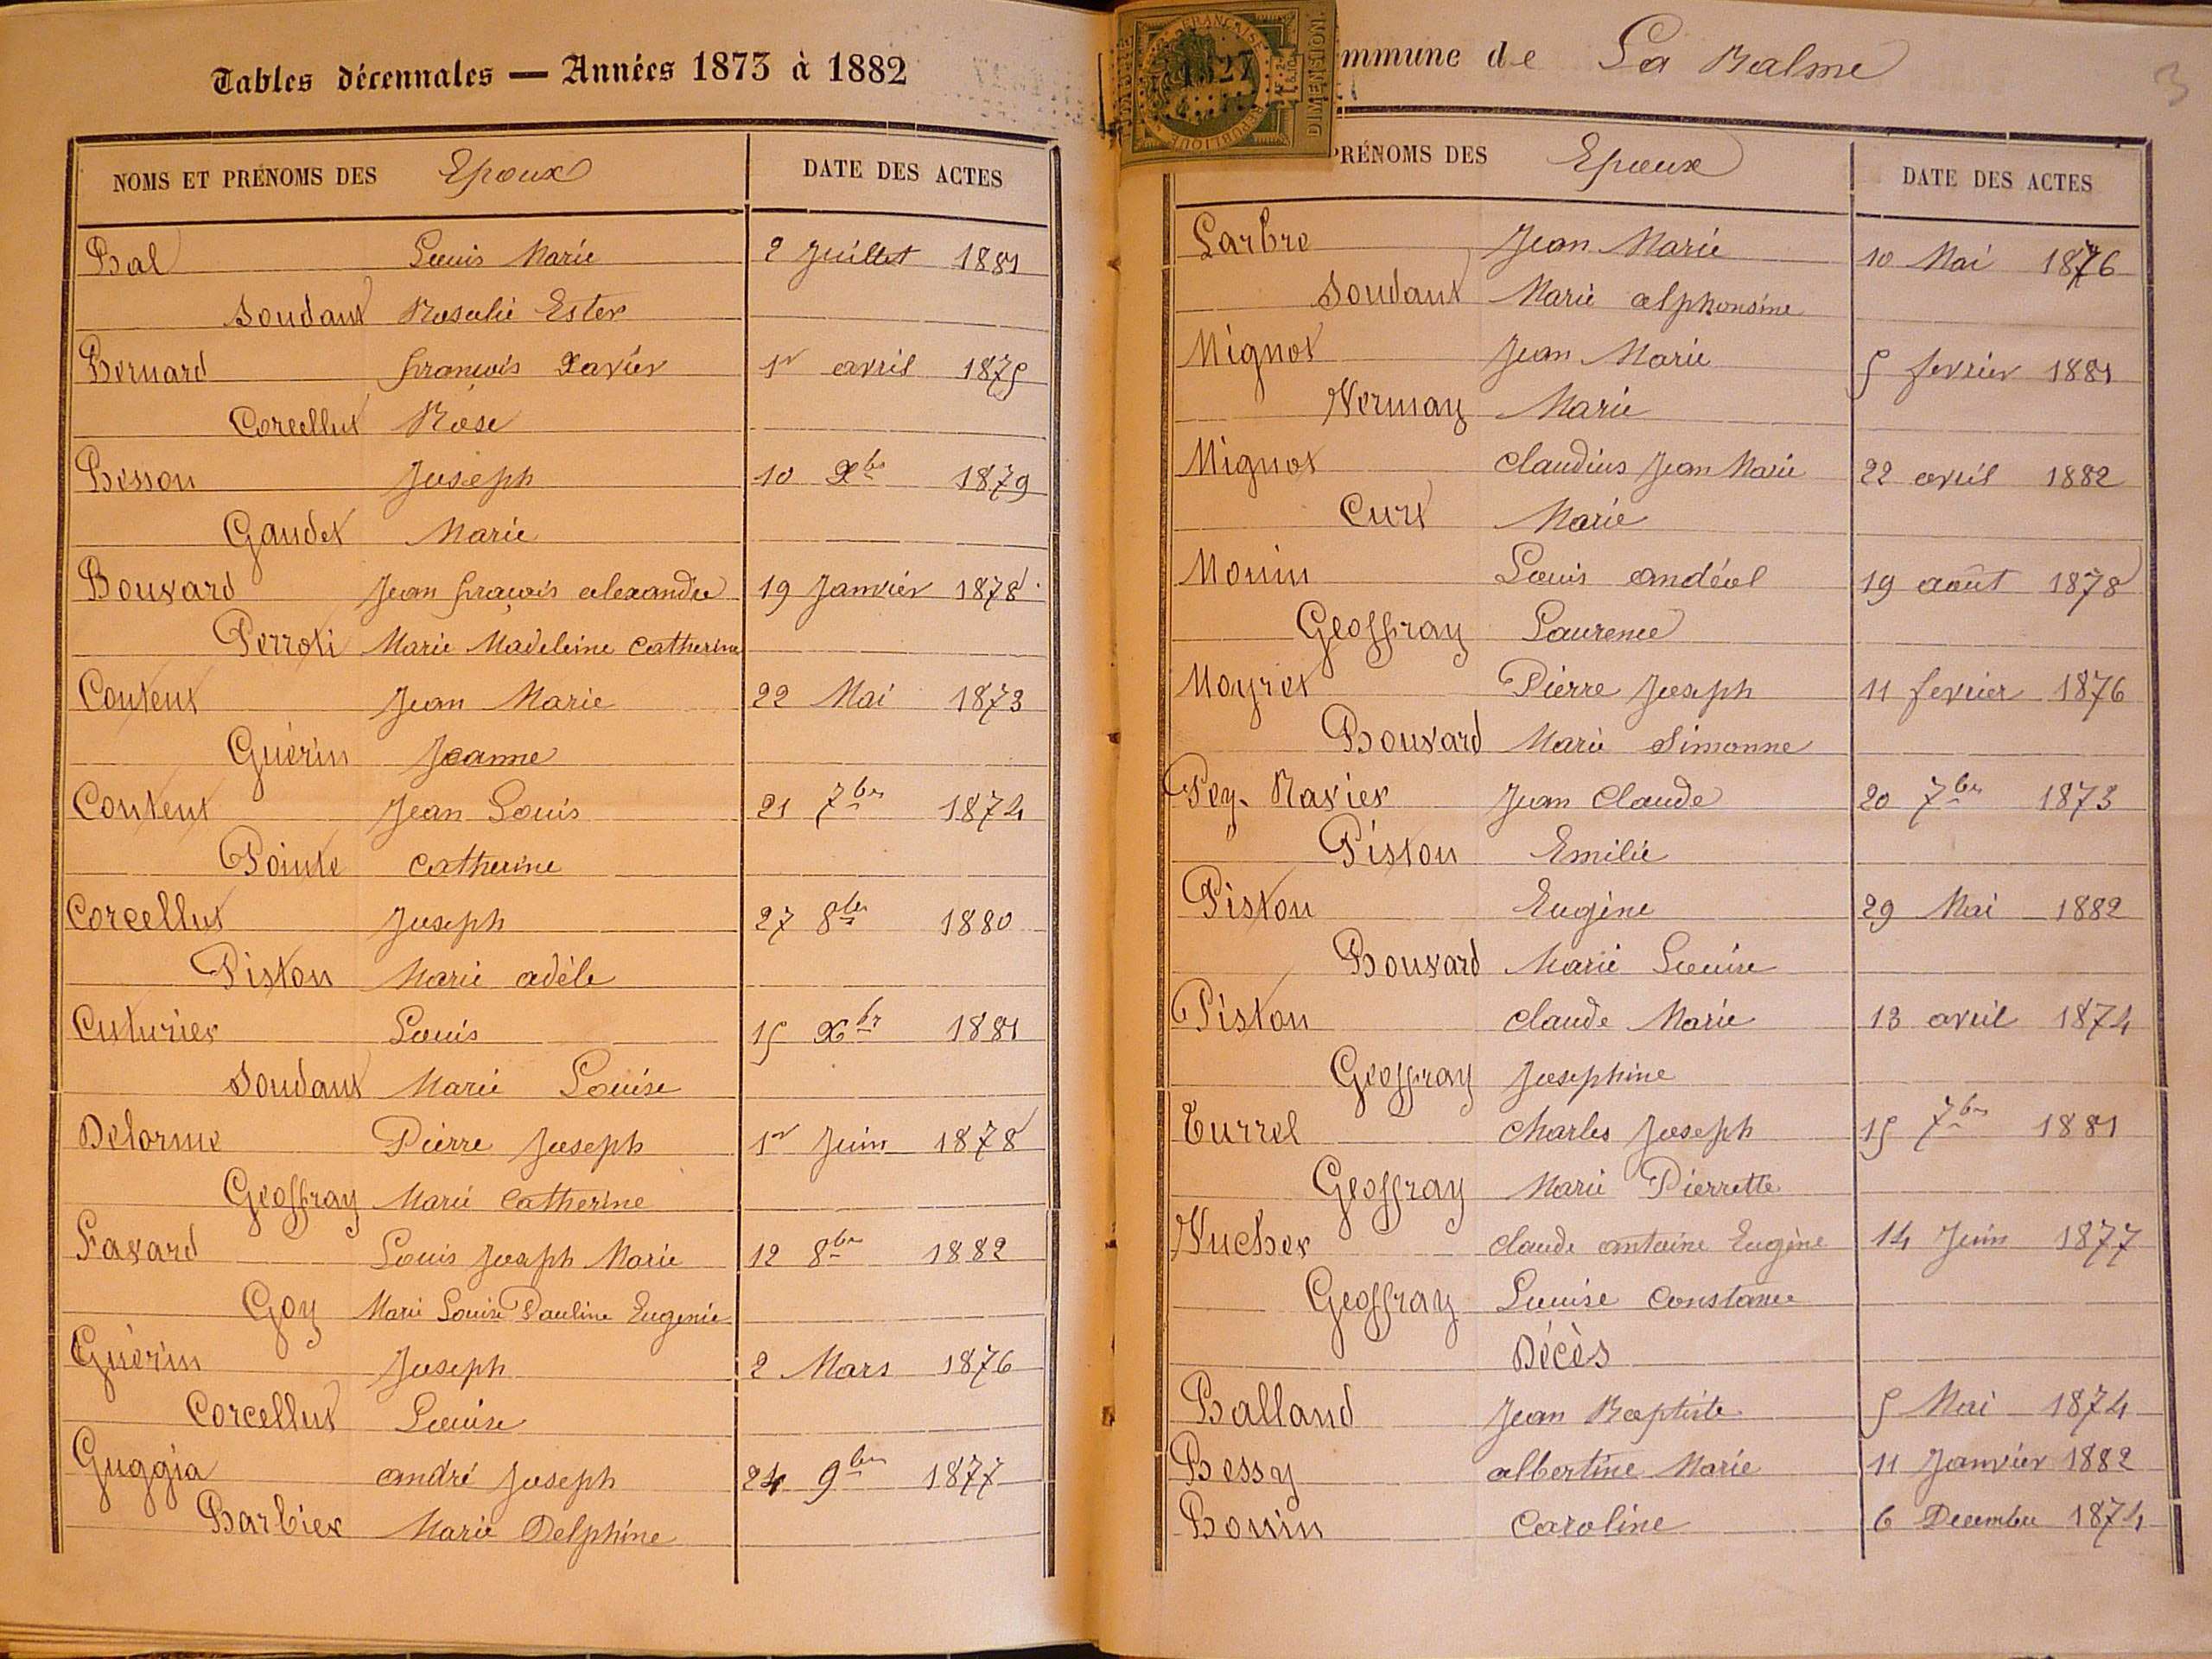 Tables décennales — Années 1873 à 1882
NOMS ET PRÉNOMS DES Epoux DATE DES ACTES
Bal Louis Marie 2 Juillet 1881
Soudant Rosalie Ester
Bernard françois Xavier 1er avril 1875
Corcellut Rose
Besson Joseph 10 Xbre 1879
Gaudet Marie
Bouvard Jean françois alexandre 19 Janvier 1878
Perroti Marie Madeleine Catherine
Content Jean Marie 22 Mai 1873
Guérin Jeanne
Content Jean Louis 21 7bre 1874
Pointe Catherine
Corcellut Joseph 27 8bre 1880
Piston Marie adèle
Custurier Louis 15 Xbre 1881
Soudant Marie Louise
Delorme Pierre Joseph 1er Juin 1878
Geoffray Marie Catherine
Favard Louis Joseph Marie 12 8bre 1882
Goy Marie Louise Pauline Eugenie
Guérin Joseph 2 Mars 1876
Corcellut Louise
Guggia andré Joseph 24 9bre 1877
Barbier Marie Delphine
mmune de La Balme
3
RÉPUBLIQUE FRANÇAISE
DIMENSION.
PRÉNOMS DES Epoux DATE DES ACTES
Larbre Jean Marie 10 Mai 1876
Soudant Marie alphonsine
Mignot Jean Marie 5 fevrier 1881
Vermay Marie
Mignot Claudius Jean Marie 22 avril 1882
Curt Marie
Monin Louis andéol 19 août 1878
Geoffray Laurence
Moyret Pierre Joseph 11 fevrier 1876
Bouvard Marie Simonne
Pey-Ravier Jean Claude 20 7bre 1873
Piston Emilie
Piston Eugène 29 Mai 1882
Bouvard Marie Louise
Piston Claude Marie 13 avril 1874
Geoffray Josephine
Turrel Charles Joseph 15 7bre 1881
Geoffray Marie Pierrette
Vucher Claude antoine Eugène 14 Juin 1877
Geoffray Louise Constance
Décès
Balland Jean Baptiste 5 Mai 1874
Bessy albertine Marie 11 Janvier 1882
Bonin Caroline 6 Decembre 1874